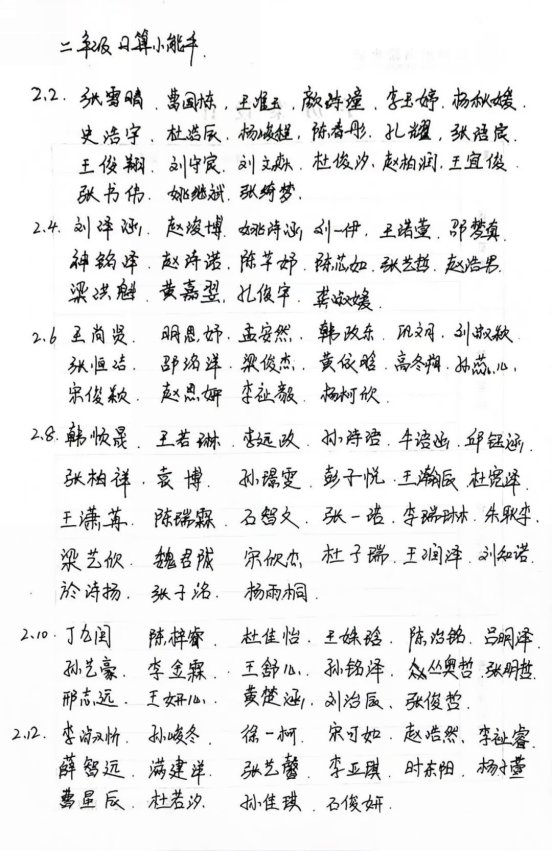 二年级口算小能手.
2.2. 张雪晴, 葛国栋, 王淮玉, 颜诗潼, 李玉婷, 杨秋媛,
史浩宇. 杜浩辰. 杨峻程. 陈春彤. 孔耀. 张浩宸.
王俊翔. 刘宇宸. 刘文焱. 杜俊汐. 赵柏润. 王宜俊.
张书伟. 姚继斌. 张绮梦.
2.4. 刘泽涵, 赵浚博. 姚诗涵, 刘一伊. 王诺萱. 邵梦真.
种铭泽. 赵诗诺. 陈芊妤. 陈芯如. 张艺哲. 赵浩男.
梁洪魁. 黄嘉翌. 孔俊宇. 龚淑媛.
2.6 王尚贤. 明恩妤. 孟安然. 韩政东. 巩文月. 刘淑颖.
张恒洁. 邵洺洋. 梁俊杰. 黄依晗. 高冬翔. 孙蕊儿.
宋俊颖. 赵恩妍 李祉毅. 杨柯欣.
2.8. 韩顺晟. 王若琳. 李远政. 孙诗语. 牛语涵. 邱钰涵.
张柏祥. 袁博. 孙璟雯. 彭子悦. 王瀚辰. 杜宽泽.
王潇苒. 陈瑞霖. 石智文. 张一诺. 李瑞琳. 朱耿李.
梁艺欣. 魏君陇 宋欣杰. 杜子瑞. 王润泽. 刘知诺.
於诗扬. 张子洺. 杨雨桐.
2.10. 丁九闰 陈梓睿. 杜佳怡. 王姝晗. 陈治铭. 吕明泽.
孙艺豪. 李金霖. 王舒儿. 孙铭泽. 丛奥哲. 张明哲.
邢志远. 王妍儿. 黄楚涵. 刘治辰. 张俊哲.
2.12. 李淑忻. 孙峻冬. 徐一柯. 宋可如. 赵浩然. 李祉睿.
薛智远. 满建洋. 张艺馨. 李亚琪. 时东阳. 杨子萱
葛星辰. 杜若汐. 孙佳琪. 石俊妍.